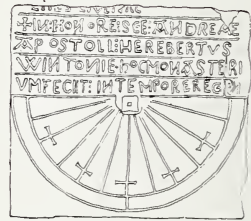 ✠ IN·HON·ORE:SCE:ANDREAE
APOSTOLI:HEREBERTVS
WINTONIE·hOCMONASTERI
VMFECIT:INTEMPOREREGN